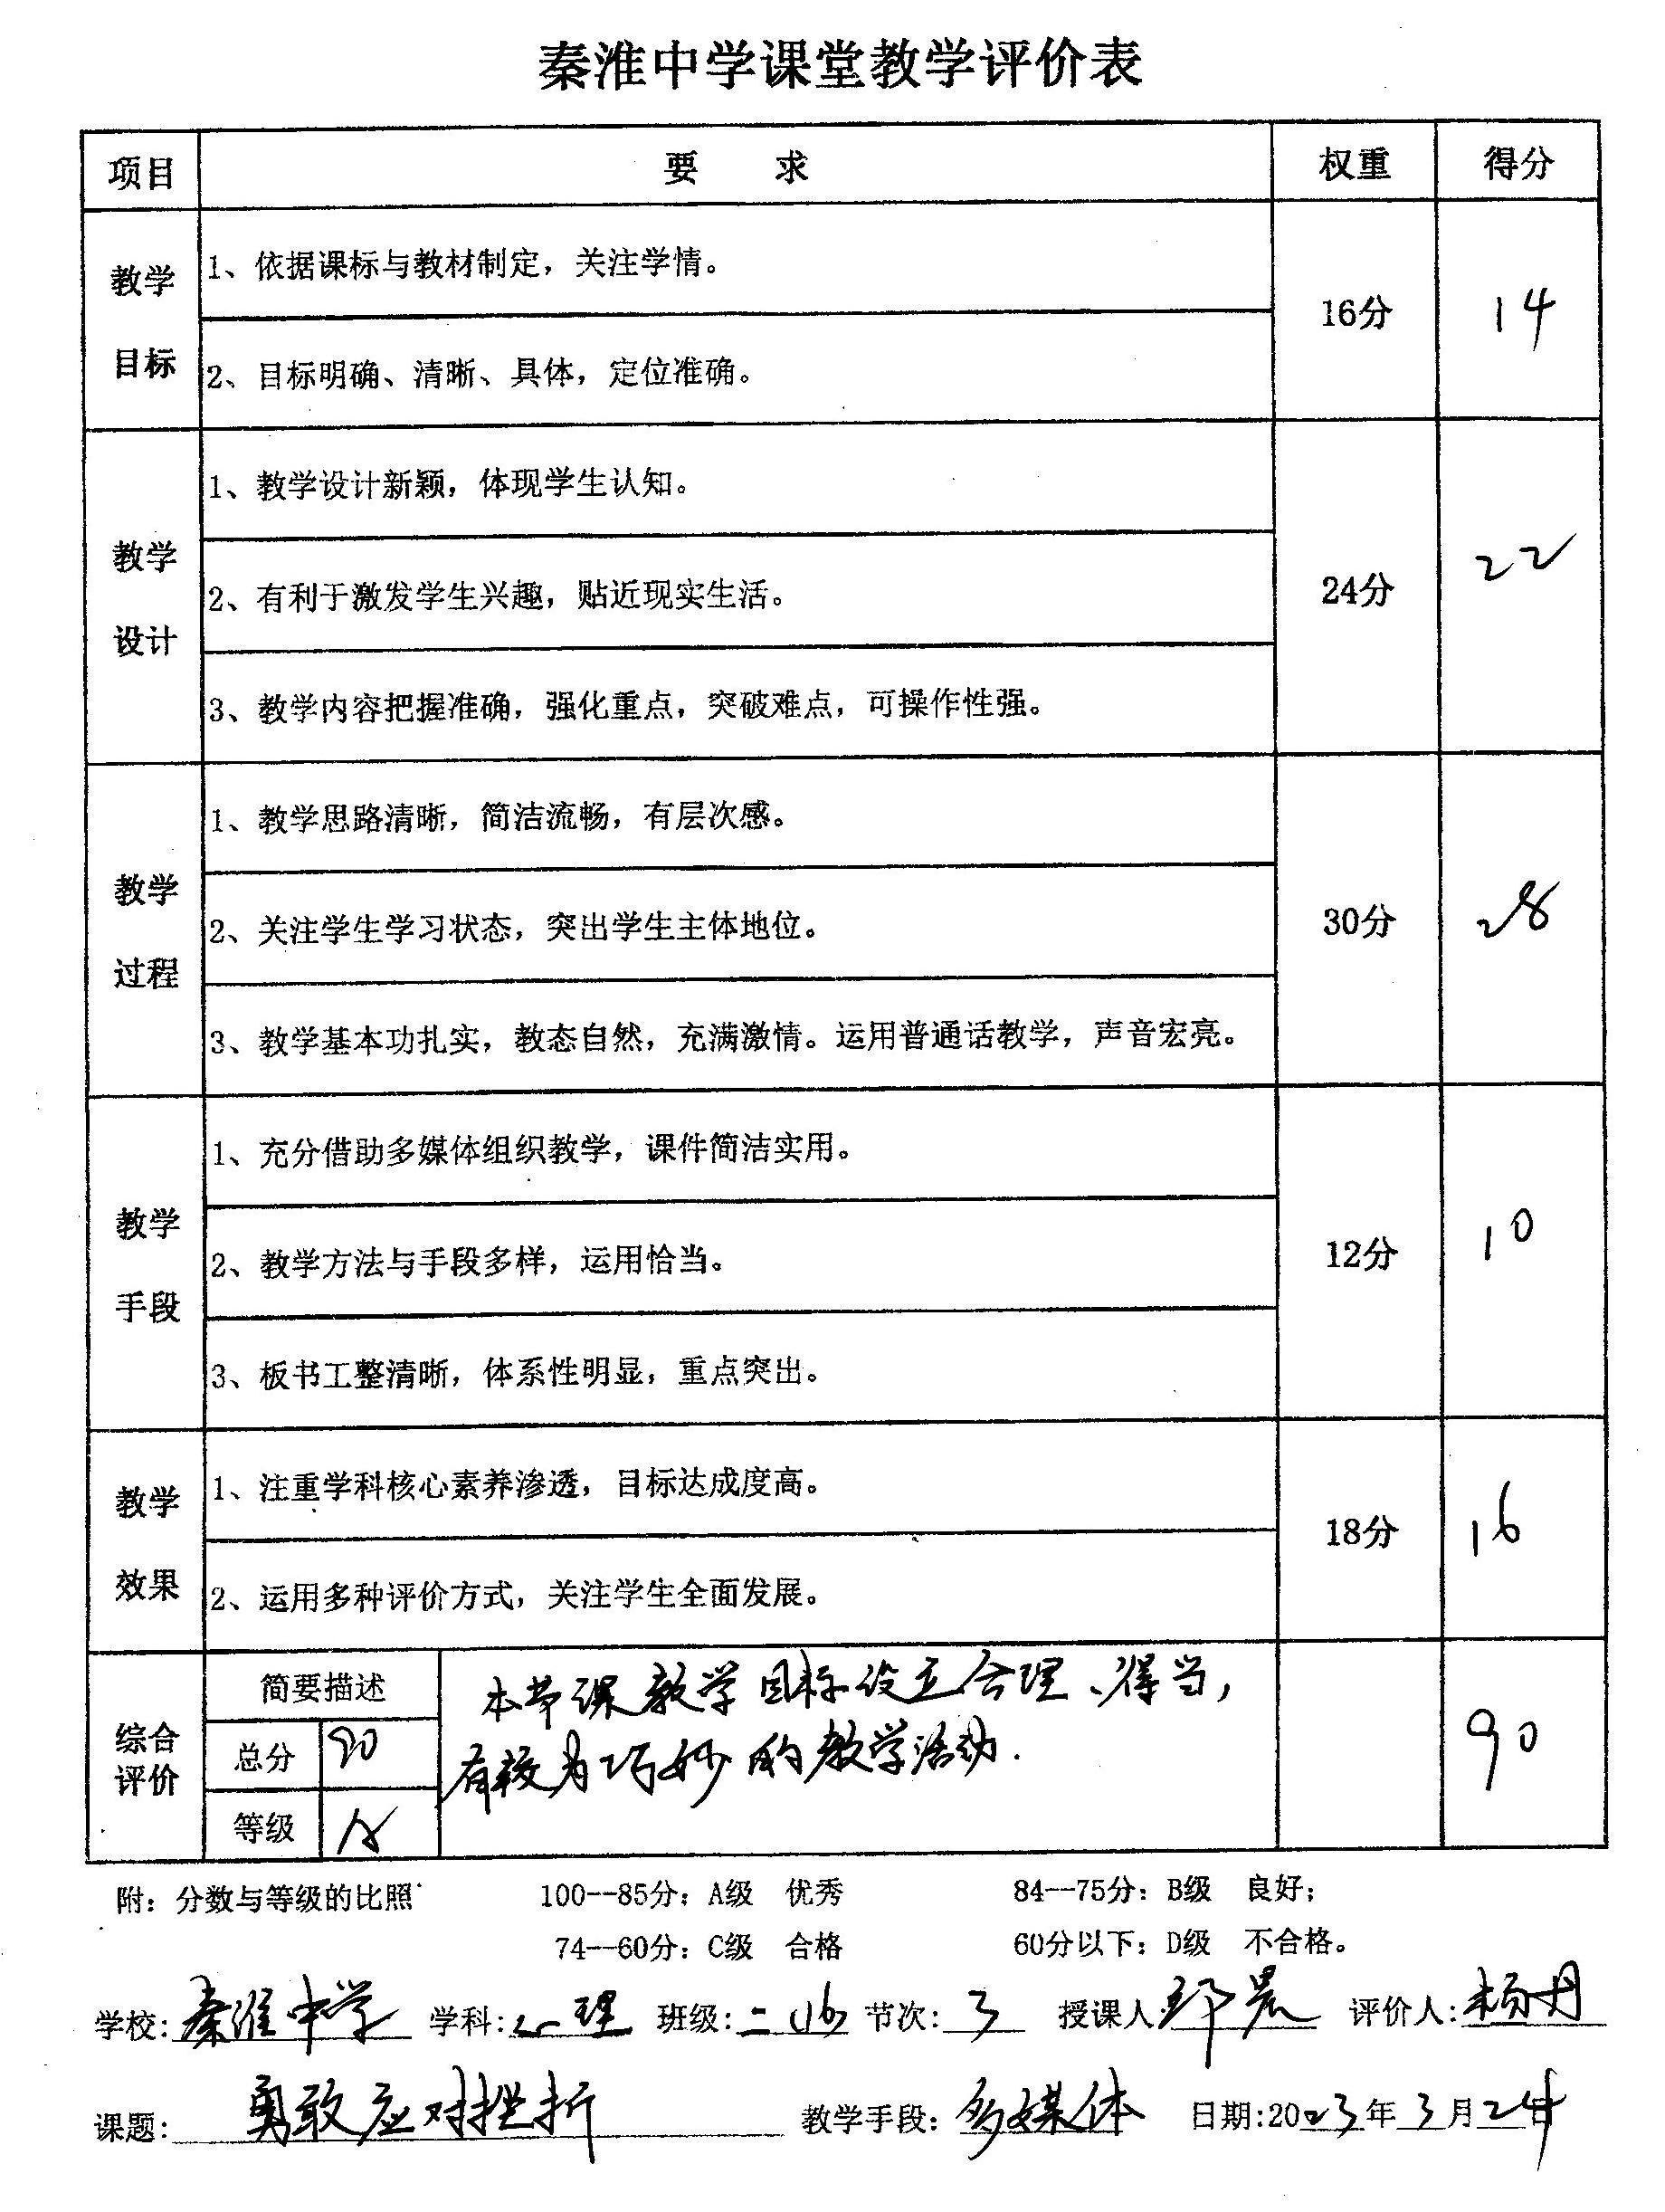 秦淮中学课堂教学评价表
项目 要 求 权重 得分
教学目标 1、依据课标与教材制定，关注学情。 16分 14
2、目标明确、清晰、具体，定位准确。
教学设计 1、教学设计新颖，体现学生认知。 24分 22
2、有利于激发学生兴趣，贴近现实生活。
3、教学内容把握准确，强化重点，突破难点，可操作性强。
教学过程 1、教学思路清晰，简洁流畅，有层次感。 30分 28
2、关注学生学习状态，突出学生主体地位。
3、教学基本功扎实，教态自然，充满激情。运用普通话教学，声音宏亮。
教学手段 1、充分借助多媒体组织教学，课件简洁实用。 12分 10
2、教学方法与手段多样，运用恰当。
3、板书工整清晰，体系性明显，重点突出。
教学效果 1、注重学科核心素养渗透，目标达成度高。 18分 16
2、运用多种评价方式，关注学生全面发展。
综合评价 简要描述 本节课教学目标设立合理、得当， 90
总分 90 有较为巧妙的教学活动.
等级 A
附：分数与等级的比照 100--85分：A级 优秀 84--75分：B级 良好；
74--60分：C级 合格 60分以下：D级 不合格。
学校：秦淮中学 学科：心理 班级：二(16) 节次：3 授课人 晨 评价人：杨丹
课题：勇敢应对挫折 教学手段：多媒体 日期：2023年3月24日